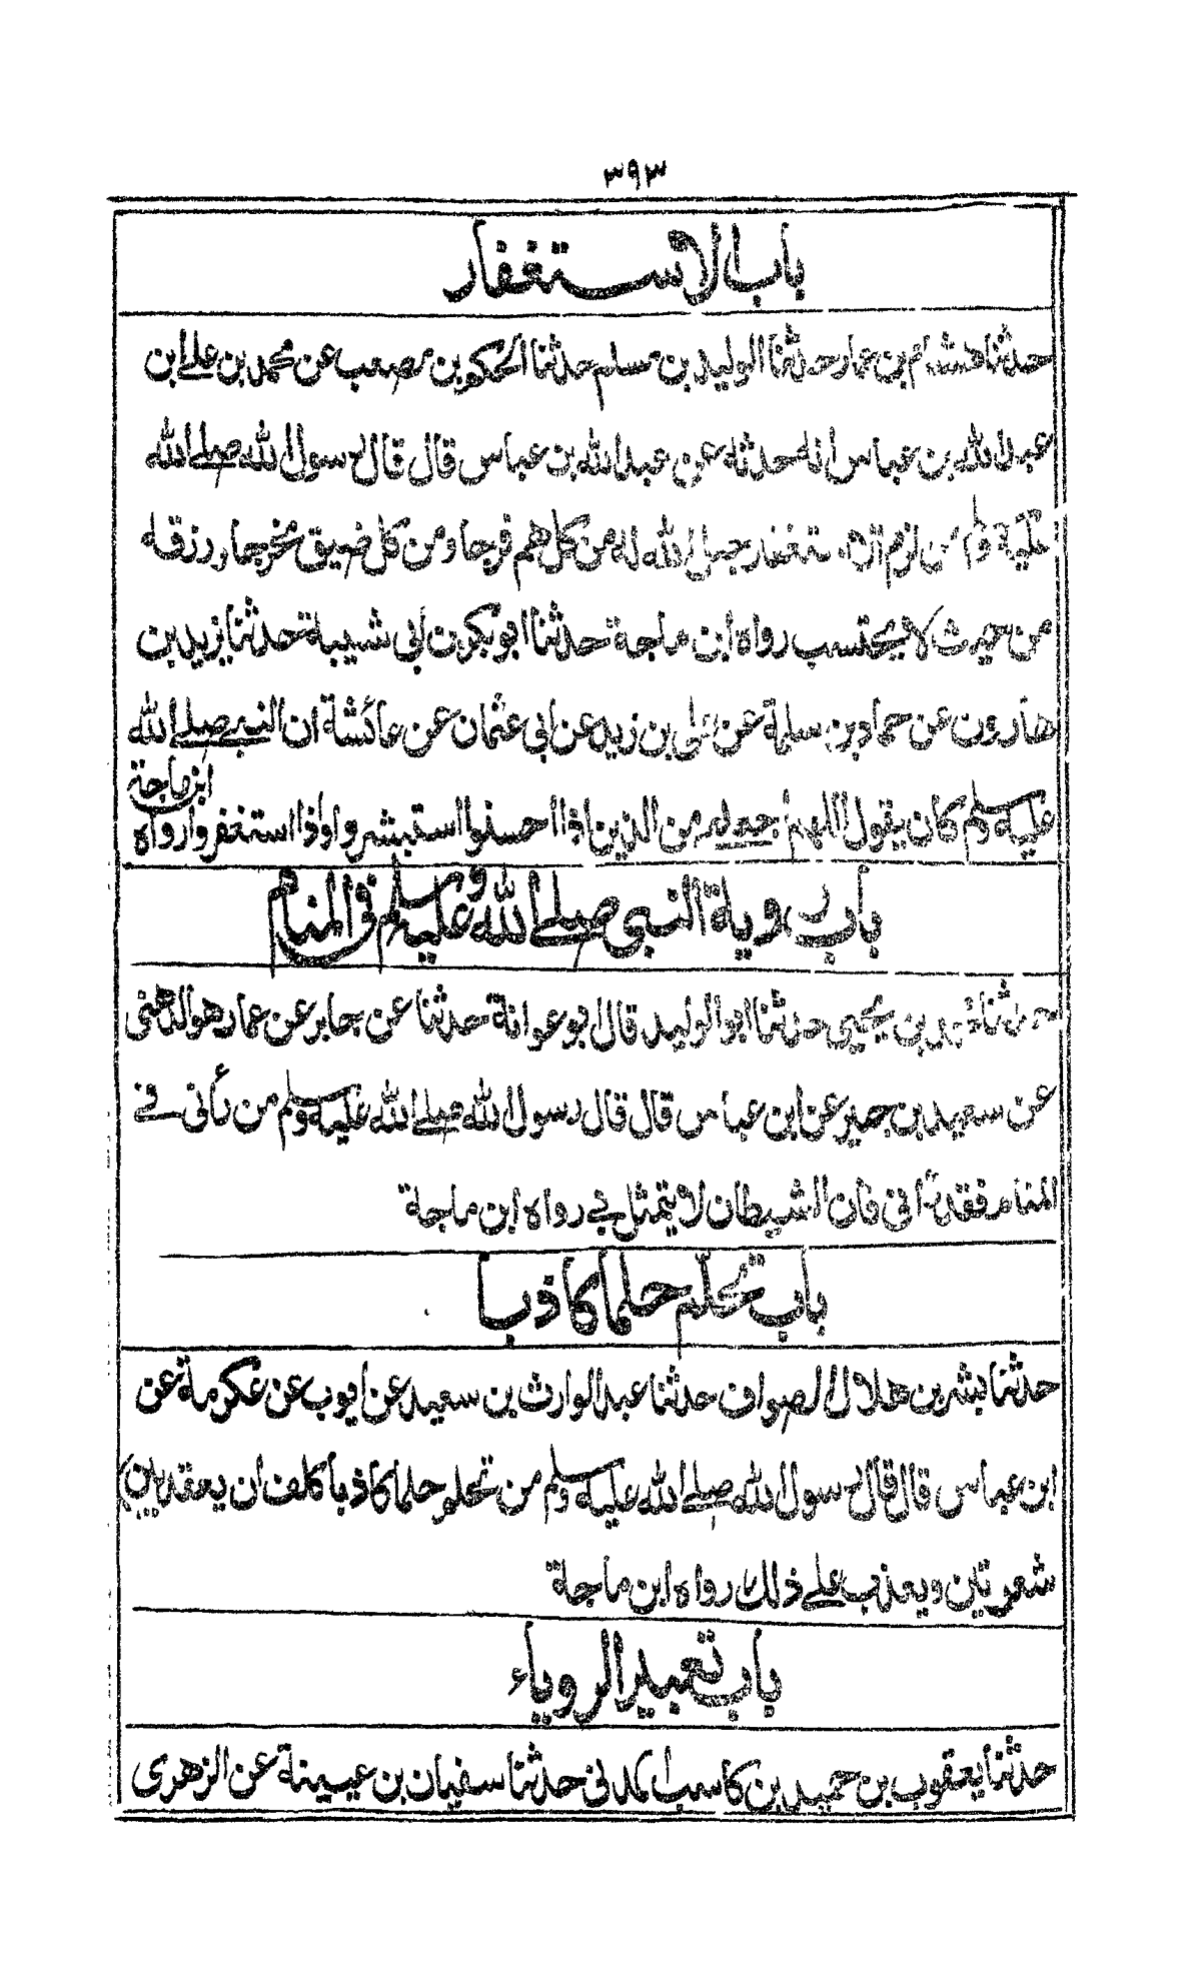 ٣٩٣
باب الاستغفار
حدثنا هشام بن عمار حدثنا الوليد بن مسلم حدثنا الحكم بن مصعب عن محمد بن علي ابن
عبد الله بن عباس انه حدثه عن عبد الله بن عباس قال قال رسول الله صلے الله
عليه وسلم من لزم الاستغفار جعل الله له من كل هم فرجا ومن كل ضيق مخرجا ورزقه
من حيث لا يحتسب رواه ابن ماجة حدثنا ابو بكر بن ابى شيبة حدثنا يزيد بن
هارون عن حماد بن سلمة عن على بن زيد عن ابى عثمان عن عائشة ان النبى صلے الله
عليه وسلم كان يقول اللهم اجعلنى من الذين اذا احسنوا استبشروا واذا استغفروا رواه ابن ماجة
باب روية النبى صلے الله عليه وسلم فى المنام
حدثنا محمد بن يحيى حدثنا ابو الوليد قال ابو عوانة حدثنا عن جابر عن عمار هو الدهنى
عن سعيد بن جبير عن ابن عباس قال قال رسول الله صلے الله عليه وسلم من رأنى فے
المنام فقد رأنى فان الشيطان لا يتمثل بى رواه ابن ماجة
باب تحلم حلما كاذبا
حدثنا بشر بن هلال الصواف حدثنا عبد الوارث بن سعيد عن ايوب عن عكرمة عن
ابن عباس قال قال رسول الله صلے الله عليه وسلم من تحلم حلما كاذبا كلف ان يعقد بين
شعرتين ويعذب علے ذلك رواه ابن ماجة
باب تعبير الروياء
حدثنا يعقوب بن حميد بن كاسب المدنى حدثنا سفيان بن عيينة عن الزهرى